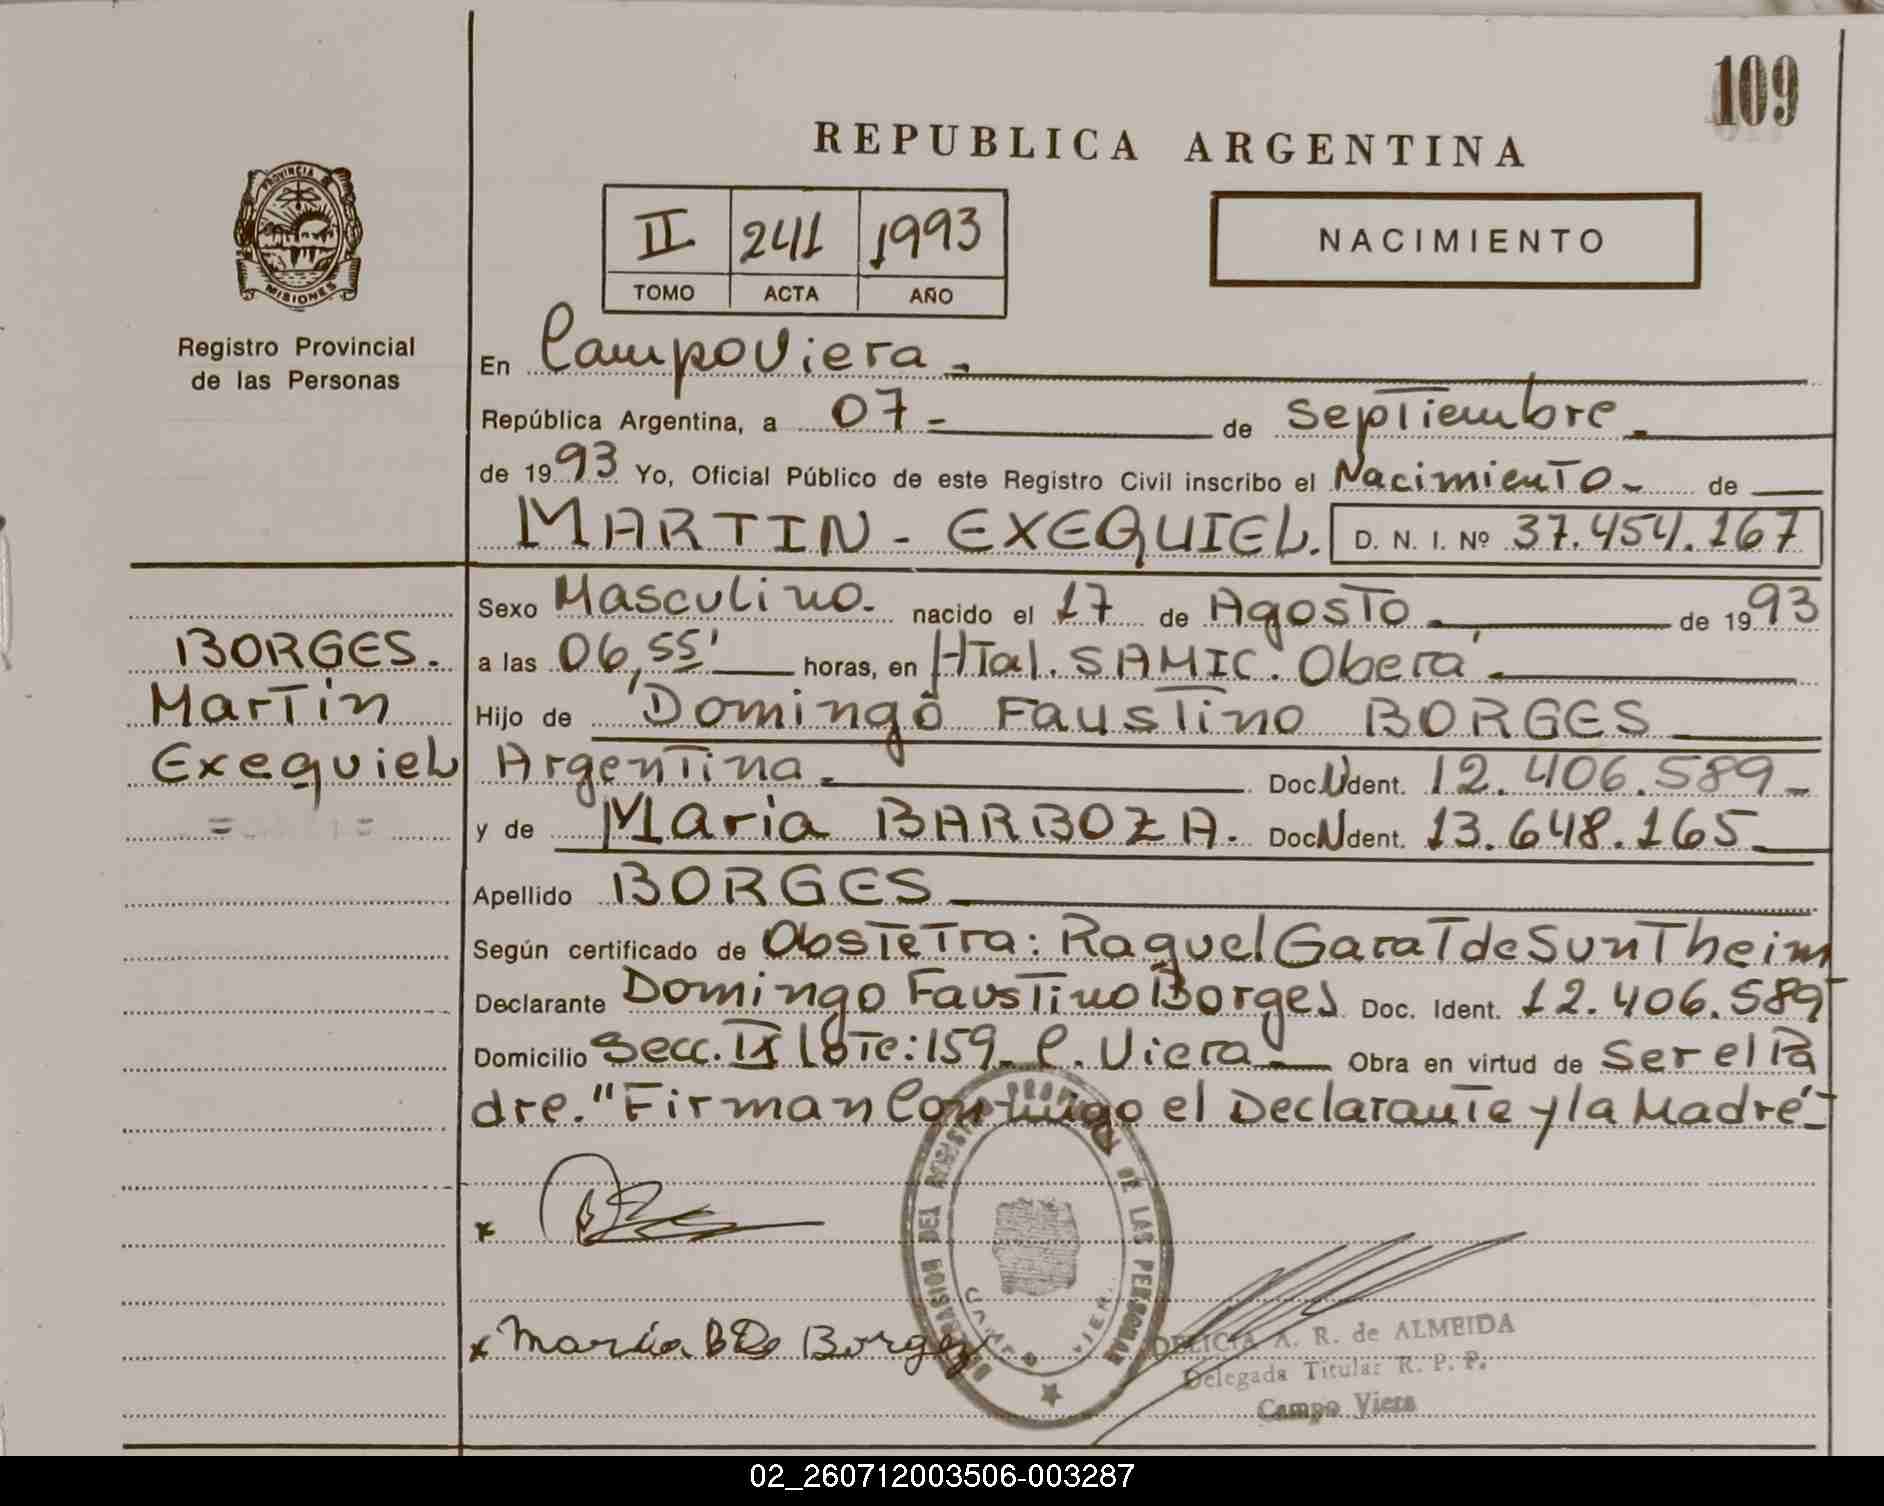 109
REPUBLICA ARGENTINA
PROVINCIA
MISIONES
II 241 1993
TOMO ACTA AÑO
NACIMIENTO
Registro Provincial
de las Personas
En Campo Viera.
República Argentina, a 07- de Septiembre.
de 1993 Yo, Oficial Público de este Registro Civil inscribo el Nacimiento- de
MARTIN - EXEQUIEL. D. N. I. Nº 37.454.167
Sexo Masculino. nacido el 17 de Agosto de 1993
BORGES.
Martin
Exequiel
= =
a las 06,55' horas, en HTal. SAMIC. Oberá
Hijo de Domingo Faustino BORGES
Argentina. Doc. N Ident. 12.406.589-
y de Maria BARBOZA. Doc N Ident. 13.648.165
Apellido BORGES
Según certificado de Obstetra: Raquel Garat de Suntheim
Declarante Domingo Faustino Borges Doc. Ident. 12.406.589
Domicilio Secc. IX lote: 159- C. Viera Obra en virtud de Ser el Pa
dre. "Firman Conmigo el Declarante y la Madre-
x
x Maria B De Borges
DEL REGISTRO PROVINCIAL DE LAS PERSONAS
CAMPO VIERA
DELICIA A. R. de ALMEIDA
Delegada Titular R. P. P.
Campo Viera
02_260712003506-003287